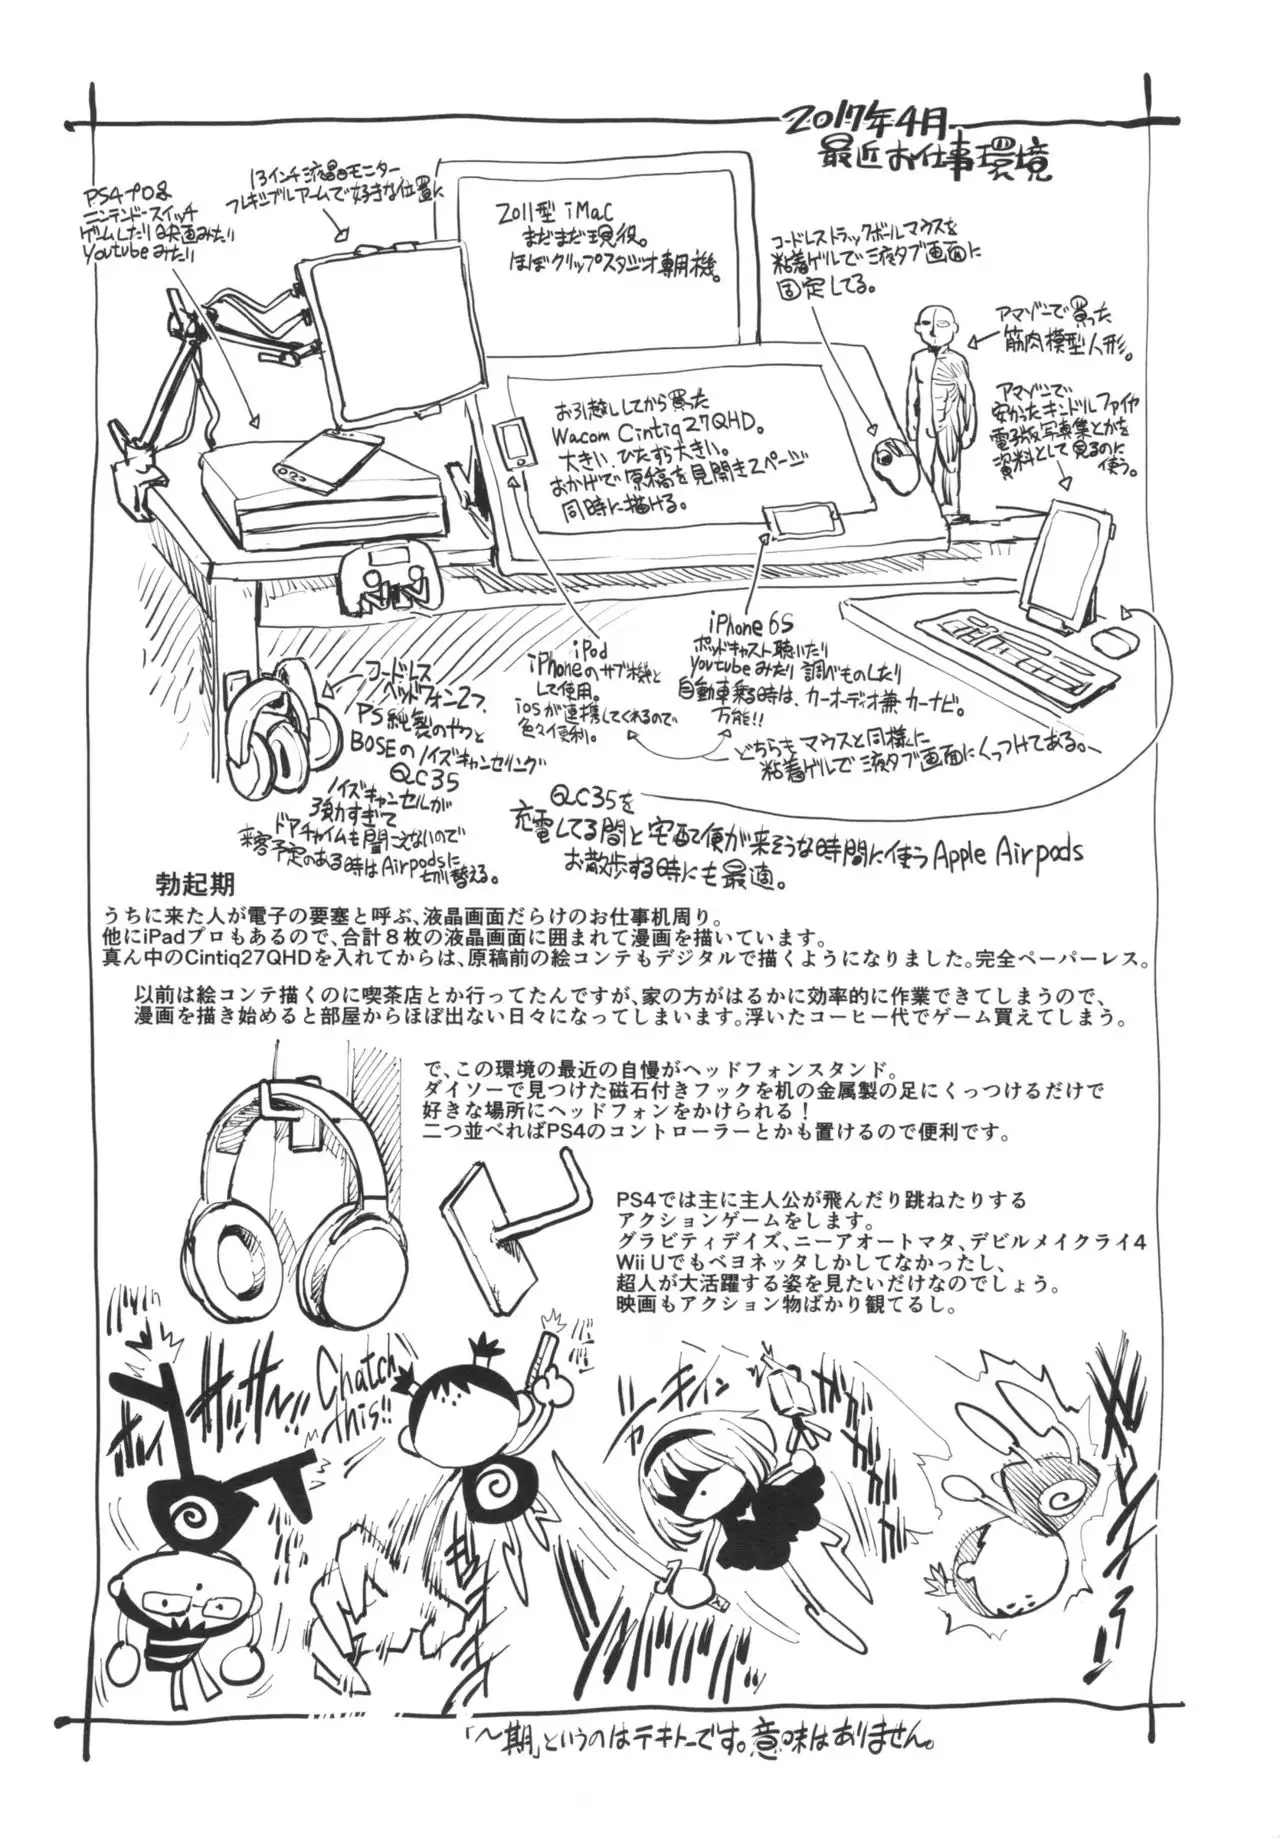 2017年4月
最近お仕事環境
13インチ液晶モニター
フレキシブルアームで好きな位置に
PS4プロ&
ニンテンドースイッチ
ゲームしたり映画みたり
Youtubeみたり
2011型 iMac
まだまだ現役。
ほぼクリップスタジオ専用機。
コードレストラックボールマウスを
粘着ゲルで液タブ画面に
固定してる。
アマゾンで買った
筋肉模型人形。
アマゾンで
安かったキンドルファイヤ
電子版写真集とかを
資料として見るのに
使う。
お引越ししてから買った
Wacom Cintiq27QHD。
大きい、ひたすら大きい。
おかげで原稿を見開き2ページ
同時に描ける。
iPod
iPhoneのサブ機と
して使用。
iosが連携してくれるので
色々便利。
iPhone 6S
ポッドキャスト聴いたり
Youtubeみたり調べものしたり
自動車乗る時は、カーオーディオ兼カーナビ。
万能!!
どちらもマウスと同様に
粘着ゲルで液タブ画面にくっつけてある。
コードレス
ヘッドフォン2つ、
PS純製のやつと
BOSEのノイズキャンセリング
QC35
ノイズキャンセルが
強力すぎて
ドアチャイムも聞こえないので
来客予定のある時はAirpodsに
切り替える。
QC35を
充電してる間と宅配便が来そうな時間に使うApple Airpods
お散歩する時にも最適。
勃起期
うちに来た人が電子の要塞と呼ぶ、液晶画面だらけのお仕事机周り。
他にiPadプロもあるので、合計8枚の液晶画面に囲まれて漫画を描いています。
真ん中のCintiq27QHDを入れてからは、原稿前の絵コンテもデジタルで描くようになりました。完全ペーパーレス。
以前は絵コンテ描くのに喫茶店とか行ってたんですが、家の方がはるかに効率的に作業できてしまうので、
漫画を描き始めると部屋からほぼ出ない日々になってしまいます。浮いたコーヒー代でゲーム買えてしまう。
で、この環境の最近の自慢がヘッドフォンスタンド。
ダイソーで見つけた磁石付きフックを机の金属製の足にくっつけるだけで
好きな場所にヘッドフォンをかけられる！
二つ並べればPS4のコントローラーとかも置けるので便利です。
PS4では主に主人公が飛んだり跳ねたりする
アクションゲームをします。
グラビティデイズ、ニーアオートマタ、デビルメイクライ4
Wii Uでもベヨネッタしかしてなかったし、
超人が大活躍する姿を見たいだけなのでしょう。
映画もアクション物ばかり観てるし。
Chatch
this!!
「〜期」というのはテキトーです。意味はありません。